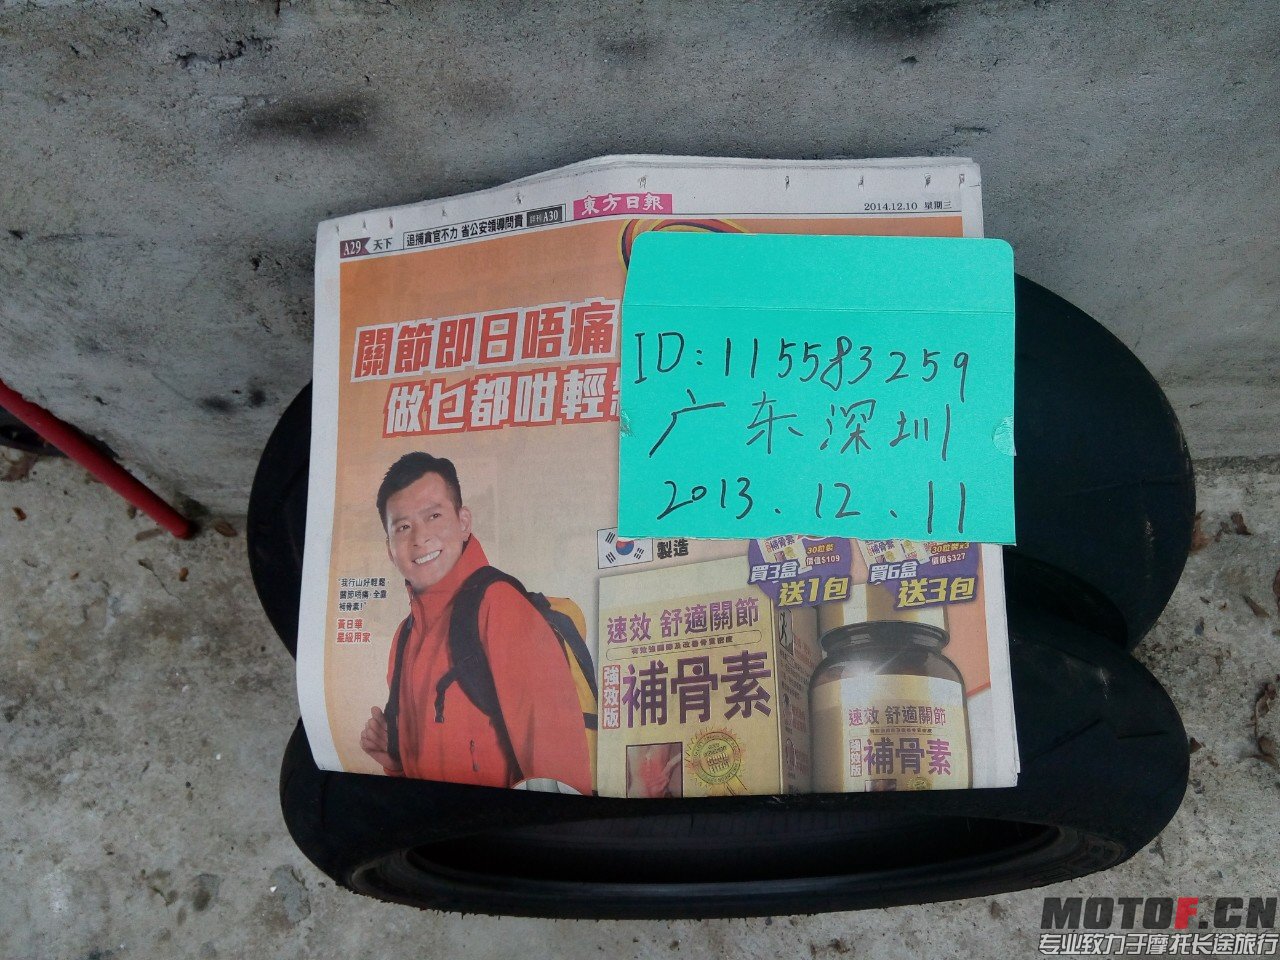 A29 天下 追捕貪官不力 省公安領導問責 詳刊A30 東方日報 2014.12.10 星期三
關節即日唔痛
做乜都咁輕
ID:115583259
广东深圳
2013.12.11
"我行山好輕鬆
關節唔痛,全靠
補骨素!"
黃日華
星級用家
製造
補骨素 30粒裝 價值$109
買3盒
送1包
30粒裝x3
價值$327
買6盒
送3包
速效 舒適關節
強效版
補骨素
速效 舒適關節
強效版
補骨素
MOTOF.CN
专业致力于摩托长途旅行